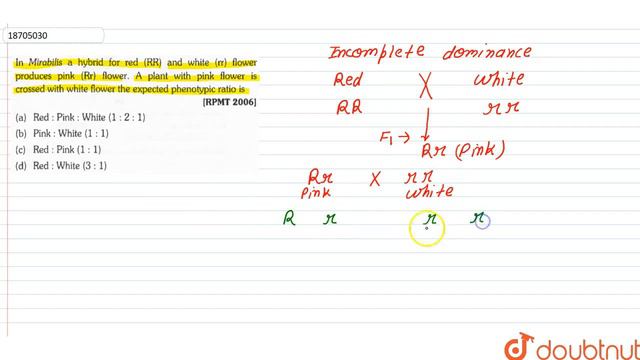 18705030
In Mirabilis a hybrid for red (RR) and white (rr) flower
produces pink (Rr) flower. A plant with pink flower is
crossed with white flower the expected phenotypic ratio is
[RPMT 2006]
(a) Red : Pink : White (1 : 2 : 1)
(b) Pink : White (1 : 1)
(c) Red : Pink (1 : 1)
(d) Red : White (3 : 1)
Incomplete dominance
Red X White
RR rr
F1 → Rr (Pink)
Rr X rr
Pink White
R r r r
doubtnut